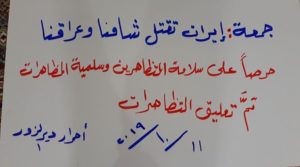 جمعة: إيران تقتل شامنا وعراقنا
حرصاً على سلامة المتظاهرين وسلمية المظاهرات
تمَّ تعليق التظاهرات
٢٠١٩/١٠/١١
أحرار ديرالزور